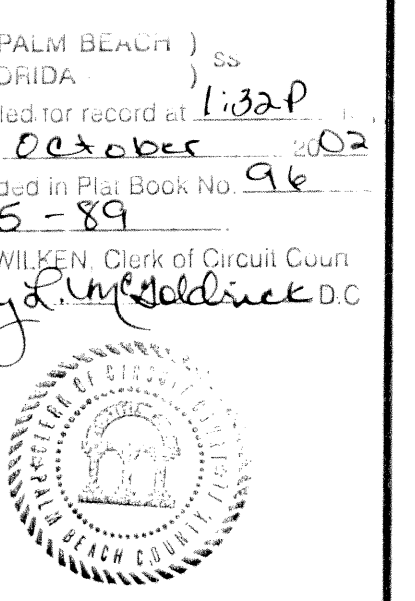 PALM BEACH ) SS
ORIDA )
led for record at 1:32P M.,
October 2002
ded in Plat Book No. 96
5 - 89
WILKEN, Clerk of Circuit Court
y L. McGoldrick D.C
CLERK OF CIRCUIT COURT
PALM BEACH COUNTY, FLORIDA